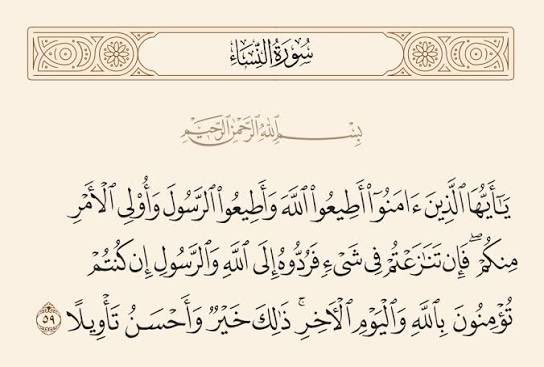 سُورَةُ النِّسَاءِ
بِسْمِ اللَّهِ الرَّحْمَٰنِ الرَّحِيمِ
يَٰٓأَيُّهَا ٱلَّذِينَ ءَامَنُوٓا۟ أَطِيعُوا۟ ٱللَّهَ وَأَطِيعُوا۟ ٱلرَّسُولَ وَأُو۟لِى ٱلْأَمْرِ
مِنكُمْ ۖ فَإِن تَنَٰزَعْتُمْ فِى شَىْءٍ فَرُدُّوهُ إِلَى ٱللَّهِ وَٱلرَّسُولِ إِن كُنتُمْ
تُؤْمِنُونَ بِٱللَّهِ وَٱلْيَوْمِ ٱلْأَخِرِ ۚ ذَٰلِكَ خَيْرٌ وَأَحْسَنُ تَأْوِيلًا ٥٩